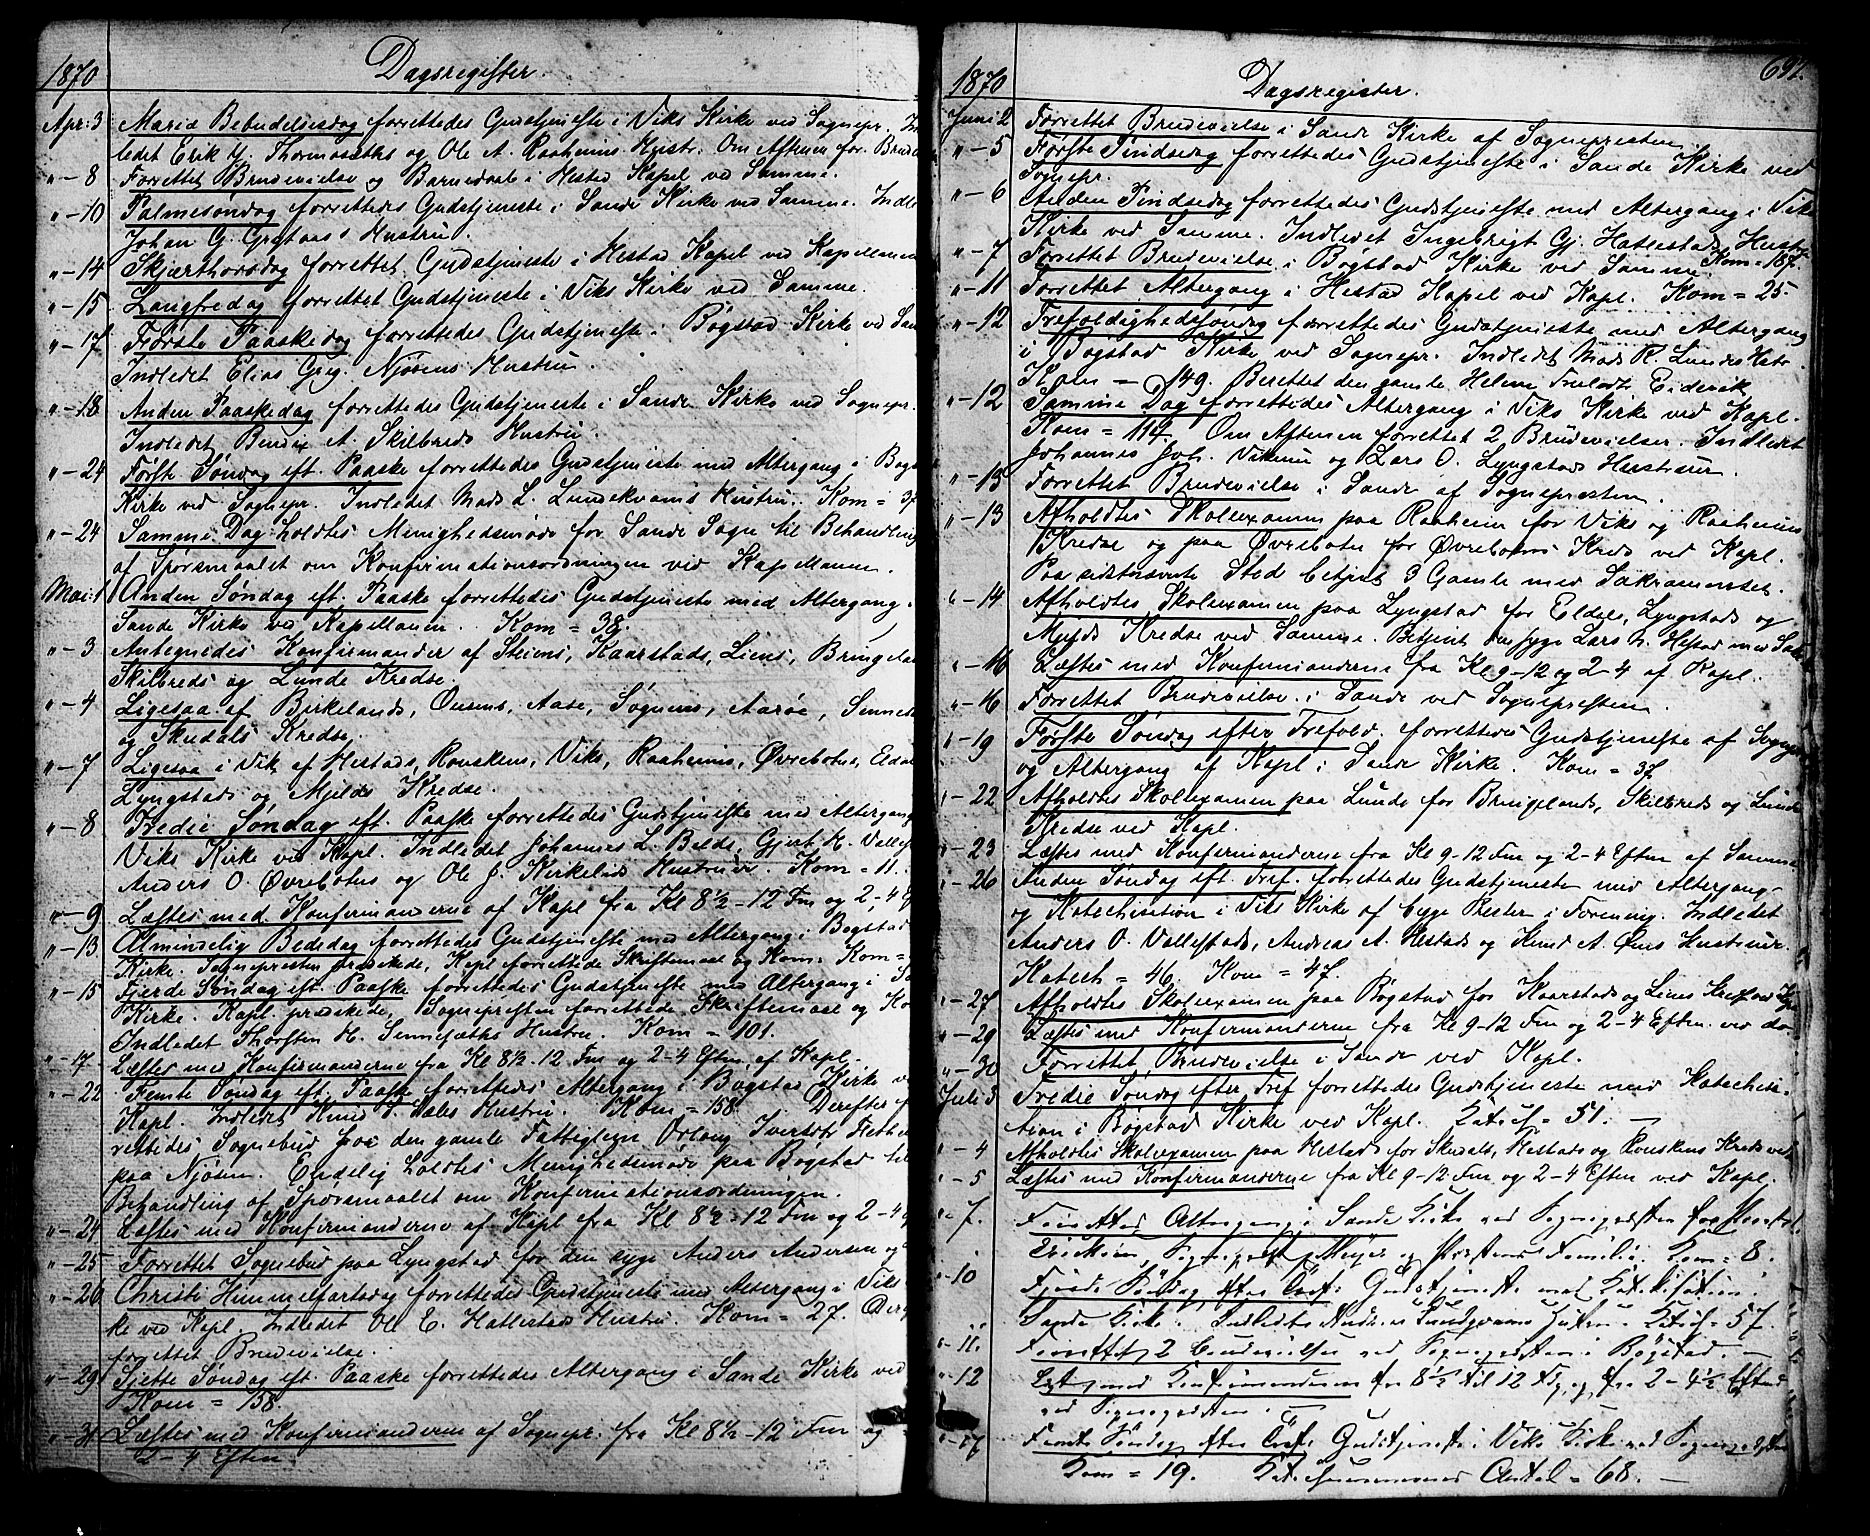 1870 Dagsregister.
Apr: 3 Mariæ Bebudelsesdag forrettedes Gudstjeneste i Viks Kirke ved Sognepr. Ind
ledet Erik og Ole A. Raaheims Hustr. Om Aftenen for. Brude
" - 8 Forrettet Brudevielse og Barnedaab i Hestad Kapel ved Samme.
" - 10 Palmesøndag forrettedes Gudstjeneste i Sande Kirke ved Samme. Indle
Johan G. Hustru.
" - 14 Skjærthorsdag forrettet Gudstjeneste i Hestad Kapel ved Kapellanen
" - 15 Langfredag forrettet Gudstjeneste i Viks Kirke ved Samme.
" - 17 Første Paaskedag forrettedes Gudstjeneste i Bygstad Kirke ved Sam
Indledet Elias Greg. Njøsens Hustru.
" - 18 Anden Paaskedag forrettedes Gudstjeneste i Sande Kirke ved Sognepr.
Indledet A. Skilbreds Hustru.
" - 24 Første Søndag eft. Paaske forrettedes Gudstjeneste med Altergang i Bygs
Kirke ved Sognepr. Indledet Mads L. Lundekvams Hustru. Kom = 37
" - 24 Samme Dag holdtes Menighedsmøde for Sande Sogn til Behandling
af Spørsmaalet om Konfirmationsordningen ved Kapellanen.
Mai: 1 Anden Søndag eft. Paaske forrettedes Gudstjeneste med Altergang i
Sande Kirke ved Kapellanen. Kom = 38.
" - 3 Antegnedes Konfirmander af Steiens, Kaarstads, Liens, Bringelan
Skilbreds og Lunde Kredse.
" - 4 Ligesaa af Birkelands, Ourens, Aase, Sognens, Aarøe,
og Skudals Kredse.
" - 7 Ligesaa i Vik af Hestads, Rouskens, Viks, Raaheims, Øvrebotns, Eldal
Lyngstads og Mjelds Kredse.
" - 8 Tredie Søndag eft. Paaske forrettedes Gudstjeneste med Altergang
Viks Kirke ved Kapl. Indledet Johannes L. Gjert H.
Anders O. Øvrebotns og Ole J. Kirkelids Hustruer. Kom = 11.
" - 9 Læstes med Konfirmanderne af Kapl fra Kl 8½ - 12 Fm og 2-4 E
" - 13 Almindelig Bededag forrettedes Gudstjeneste med Altergang i Bygstad
Kirke. Sognepresten prædikede, Kapl forrettede Skriftemaal og Kom. Kom =
" - 15 Fjerde Søndag eft. Paaske forrettedes Gudstjeneste med Altergang i S
Kirke. Kapl. prædikede, Sognepresten forrettede Skriftemaal og Ko
Indledet Thorsten H. Hustru. Kom = 101.
" - 17 Læstes med Konfirmanderne fra Kl 8½ - 12 Fm og 2-4 Eftm af Kapl.
" - 22 Femte Søndag eft. Paaske forrettedes Altergang i Bygstad Kirke v
Kapl. Indledet Hustru. Kom = 158. Derefter f
rettedes Sognebud hos den gamle Fattiglem
paa Njøsen. Endelig holdtes Menighedsmøde paa Bygstad til
Behandling af Spørsmaalet om Konfirmationsordningen.
" - 24 Læstes med Konfirmanderne af Kapl fra Kl 8½ - 12 Fm og 2-4
" - 25 Forrettet Sognebud paa Lyngstad for den syge Anders Andersen
" - 26 Christi Himmelfartsdag forrettedes Gudstjeneste med Altergang i Viks
ke ved Kapl. Indledet Ole E. Hatlestads Hustru. Kom = 27.
forrettet Brudevielse.
" - 29 Sjette Søndag eft. Paaske forrettedes Altergang i Sande Kirke ved
Kom = 158.
" - 31 Læstes med Konfirmanderne af Sognepr. fra Kl 8½ - 12 Fm og
2-4 Eftm.
1870 Dagsregister.
Juni 2 Forrettet Brudevielse i Sande Kirke af Sognepresten.
" - 5 Første Pindsedag forrettedes Gudstjeneste i Sande Kirke ved
Sognepr.
" - 6 Anden Pindsedag forrettedes Gudstjeneste med Altergang i Viks
Kirke ved Samme. Indledet Ingebrigt Gj. Hatlestads Hustr
Kom = 187.
" - 7 Forrettet Brudevielse i Bygstad Kirke ved Samme.
" - 11 Forrettet Altergang i Hestad Kapel ved Kapl. Kom = 25.
" - 12 Trefoldighedssøndag forrettedes Gudstjeneste med Altergang
i Bygstad Kirke ved Sognepr. Indledet Mads R. Lundes
Kom = 149. Berettet den gamle Helene Eidevik
" - 12 Samme Dag forrettedes Altergang i Viks Kirke ved Kapl.
Kom = 114. Om Aftenen forrettet 2 Brudevielser. Indledet
Johannes Joh. og Lars O. Lyngstads Hustruer.
" - 15 Forrettet Brudevielse i Sande af Sognepresten.
" - 13 Afholdtes Skolexamen paa Raaheim for Viks og Raaheims
Kredse og paa Øvrebotn for Øvrebotns Kreds ved Kapl.
Paa sidstnævnte Sted betjent 3 Gamle med Sakramentet.
" - 14 Afholdtes Skolexamen paa Lyngstad for Eldals, Lyngstads og
Mjelds Kredse ved Samme. Betjent den syge Lars N. Hestad med Sakr
" - 16 Læstes med Konfirmanderne fra Kl 9-12 og 2-4 af Kapl.
" - 16 Forrettet Brudevielse i Sande ved Sognepresten.
" - 19 Første Søndag efter Trefold. forrettedes Gudstjeneste af Sognepr
og Altergang af Kapl i Sande Kirke. Kom = 37
" - 22 Afholdtes Skolexamen paa Lunde for Bringelands, Skilbreds og Lunde
Kredse ved Kapl.
" - 23 Læstes med Konfirmanderne fra Kl 9-12 Fm og 2-4 Eftm af Samme
" - 26 Anden Søndag eft. Tref. forrettedes Gudstjeneste med Altergang
og Katechisation i Viks Kirke af begge Prester i Forening. Indledet
Anders O. Vallestads, Andreas A. Hestads og Knud A. Hustruer.
Katech = 46. Kom = 47.
" - 27 Afholdtes Skolexamen paa Bygstad for Kaarstads og Liens
" - 29 Læstes med Konfirmanderne fra Kl 9-12 Fm og 2-4 Eftm. ved do
" - 30 Forrettet Brudevielse i Sande ved Kapl.
Juli 3 Tredie Søndag efter Tref forrettedes Gudstjeneste med Katechisa-
tion i Bygstad Kirke ved Kapl. Katech = 51.
" - 4 Afholdtes Skolexamen paa Hestad for Skudals, Hestads og Rouskens Kreds ved
" - 5 Læstes med Konfirmanderne fra Kl 9-12 Fm og 2-4 Eftm ved Kapl.
" - 7. Forrettet Altergang i Sande Kirke ved Sognepresten for
Sognepræst Meyer og Familie. Kom = 8.
" - 10 Fjerde Søndag efter Tref: Gudstjeneste med Katekisation i
Sande Kirke. Indledet Hustru. Katech = 57.
" - 11. Forrettet 2 Brudevielser ved Sognepresten i Bygstad.
" - 12 Læst med Konfirmanderne fra 8½ til 12 og fra 2-4½ Efterm
ved Sognepresten.
" - 17 Femte Søndag efter Tref: Gudstjeneste i Viks Kirke ved Sognepresten
Kom = 19. Antal = 68.